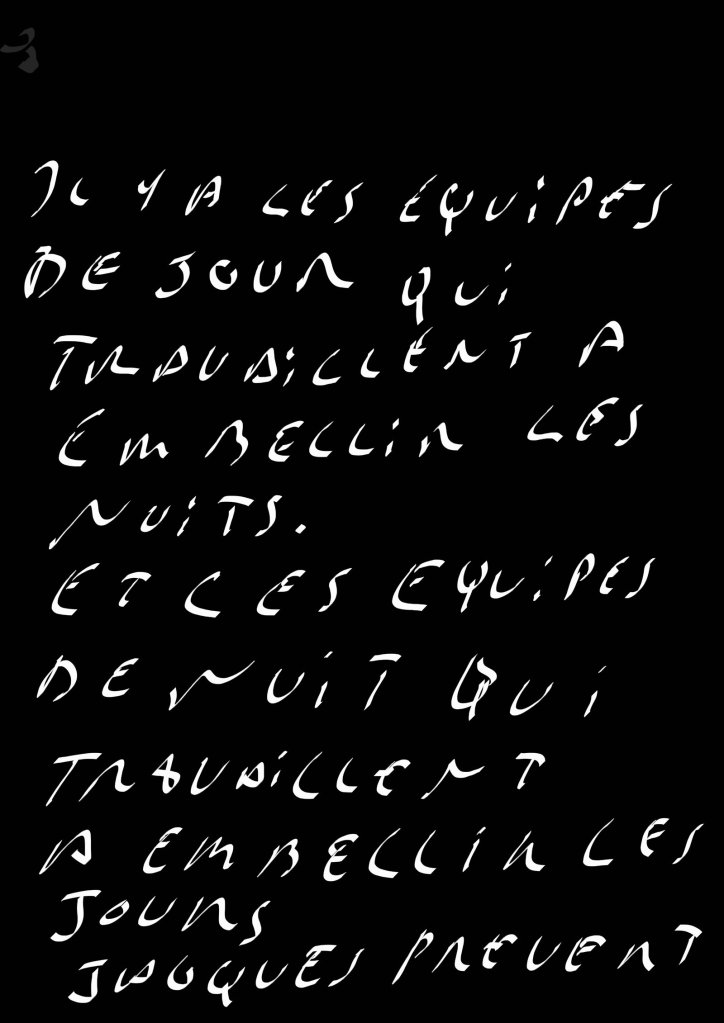 IL Y A LES EQUIPES
DE JOUR QUI
TRAVAILLENT A
EMBELLIR LES
NUITS.
ET LES EQUIPES
DE NUIT QUI
TRAVAILLENT
A EMBELLIR LES
JOURS
JACQUES PREVERT